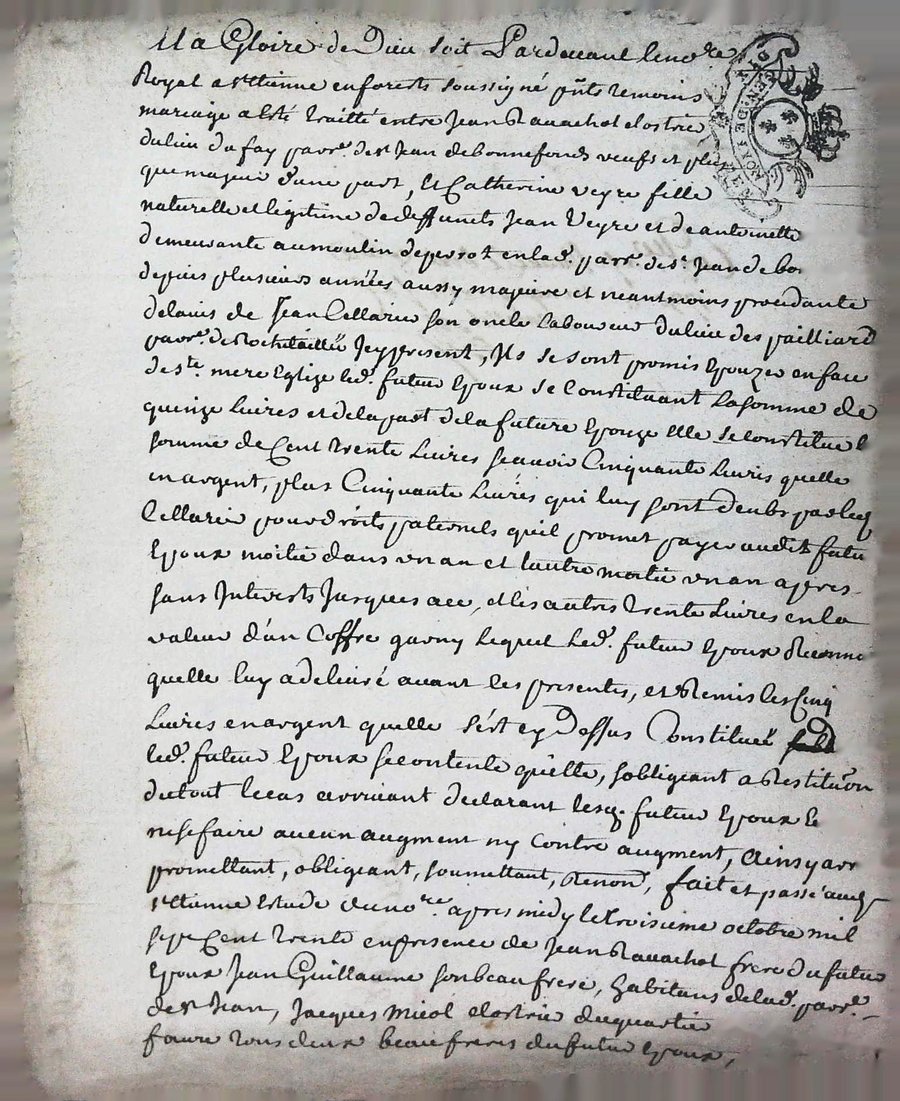 A la Gloire de Dieu soit Pardevant le no.re
Royal a st Etienne en forests soussigné pnts temoins
mariage a esté traitté entre Jean Ravachol clostrie
du lieu du fay parr.e de st Jean de bonnefonds veufs et plus
que majeur d'une part, Et Catherine veyre fille
naturelle et legitime de deffunts Jean Veyre et de antoinette
demeurante au moulin de perrot en lad. parr.e de st. Jean de bo
depuis plusieurs années aussy majeure et neantmoins procedante
de lavis de Jean Cellarier son oncle Laboureur du lieu des pailliard
parr.e de Rochetaillée Jcy present, Jls se sont promis Epouzer en face
de ste. mere Eglise led. futur Epoux se Constituant La somme de
quinze Livres et de la part de la future Epouze Elle se Constitue l
somme de Cent trente Livres scavoir Cinquante Livres quelle
en argent, plus Cinquante Livres qui luy sont deubs par led
Cellarier pour droits paternels qu'il promet payer audit futu
Epoux moitié dans un an et lautre moitié un an apres
sans Jnterests Jusques a ce, et les autres trente Livres en la
valeur d'un Coffre garny Lequel Led. futur Epoux Reconno
quelle luy a delivré avant les presentes, et Remis les Cinq
Livres en argent quelle s'est cy Dessus Constituée
led. futur Epoux se contente quitte, sobligeant a Restitu'on
du tout le cas arrivant declarant lesd. futur Epoux le
ne se faire aucun augment ny Contre augment, Ainsy arr
promettant, obligeant, soumettant, Renonc, fait et passé aud
st Etienne Estude du no.re apres midy le troisieme octobre mil
sept Cent trente en presence de Jean Ravachol frere du futur
Epoux Jean Guillaume son beau frere, habitans de lad. parr.e
de st Jean, Jacques Micol clostrier du quartier
faure tous deux beau freres du futur Epoux,
GEN DE LYON